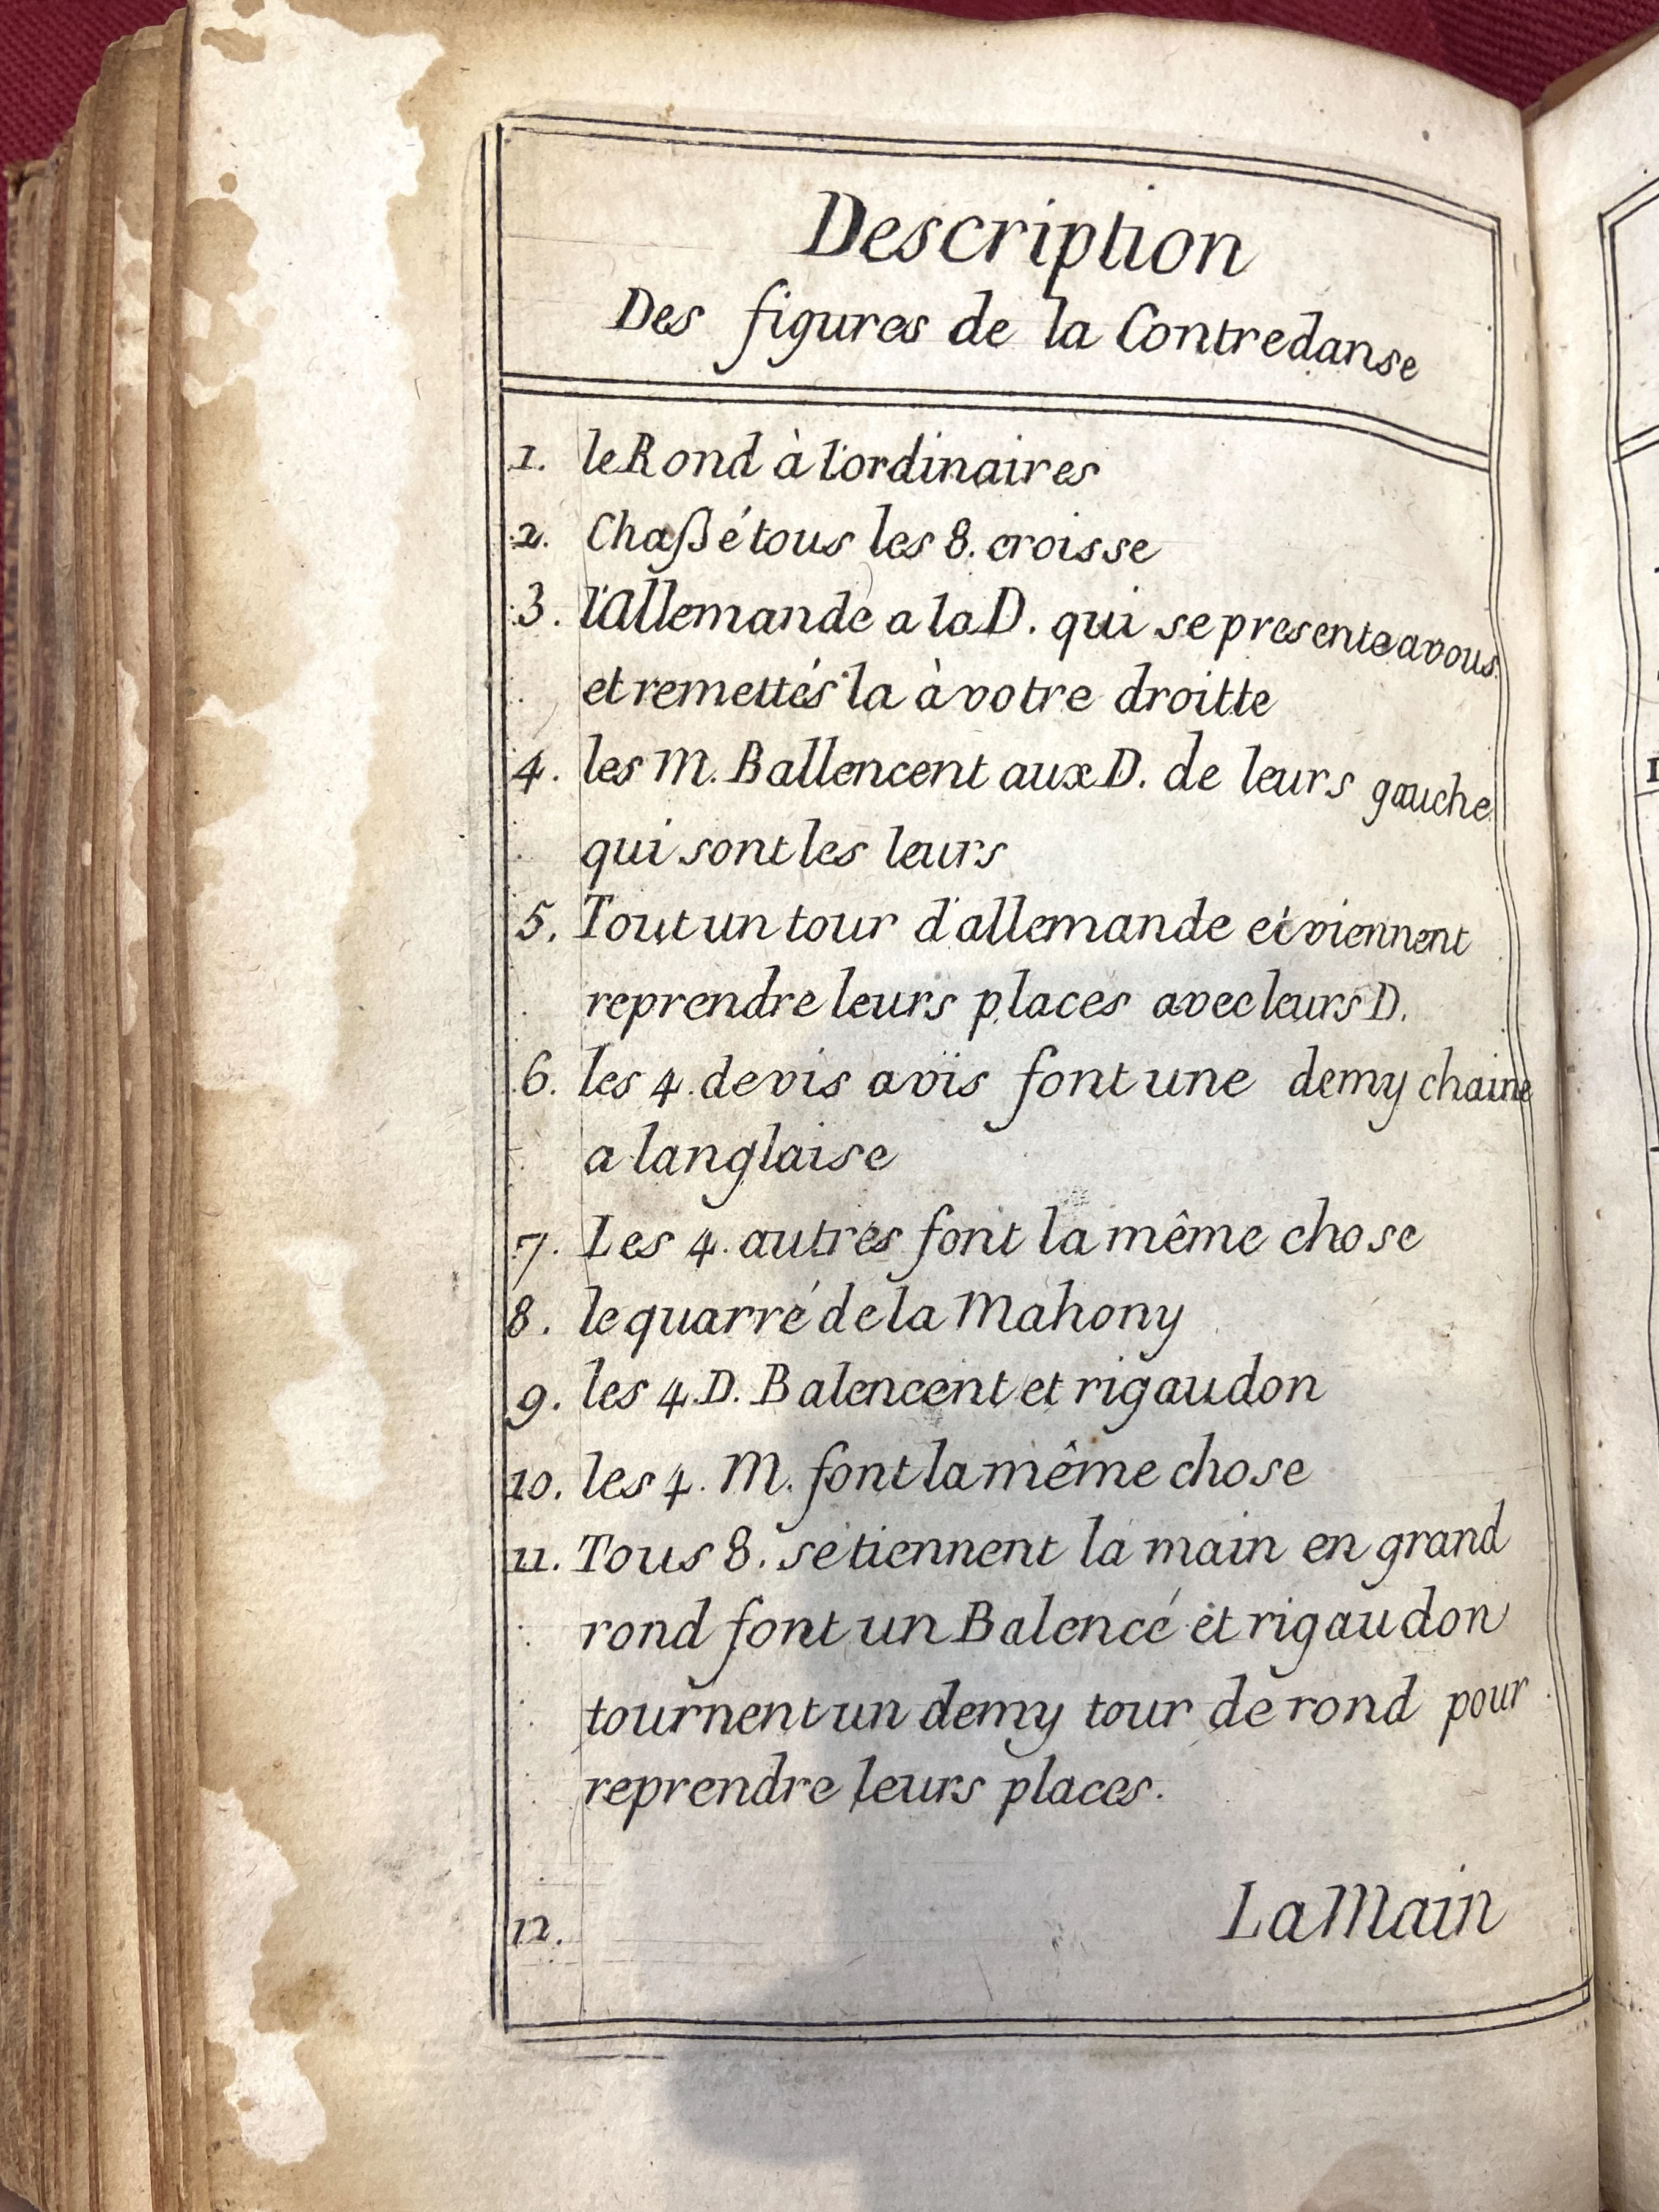 Description
Des figures de la Contredanse
1. le Rond à l'ordinaires
2. Chaßé tous les 8. croisse
3. l'allemande a la D. qui se presente a vous
et remettés la à votre droitte
4. les M. Ballencent aux D. de leurs gauche
qui sont les leurs
5. Tout un tour d'allemande et viennent
reprendre leurs places avec leurs D.
6. les 4. de vis avïs font une demy chaine
a langlaise
7. Les 4. autres font la même chose
8. le quarré de la Mahony
9. les 4. D. Balencent et rigaudon
10. les 4. M. font la même chose
11. Tous 8. se tiennent la main en grand
rond font un Balencé et rigaudon
tournent un demy tour de rond pour
reprendre leurs places.
12. La Main